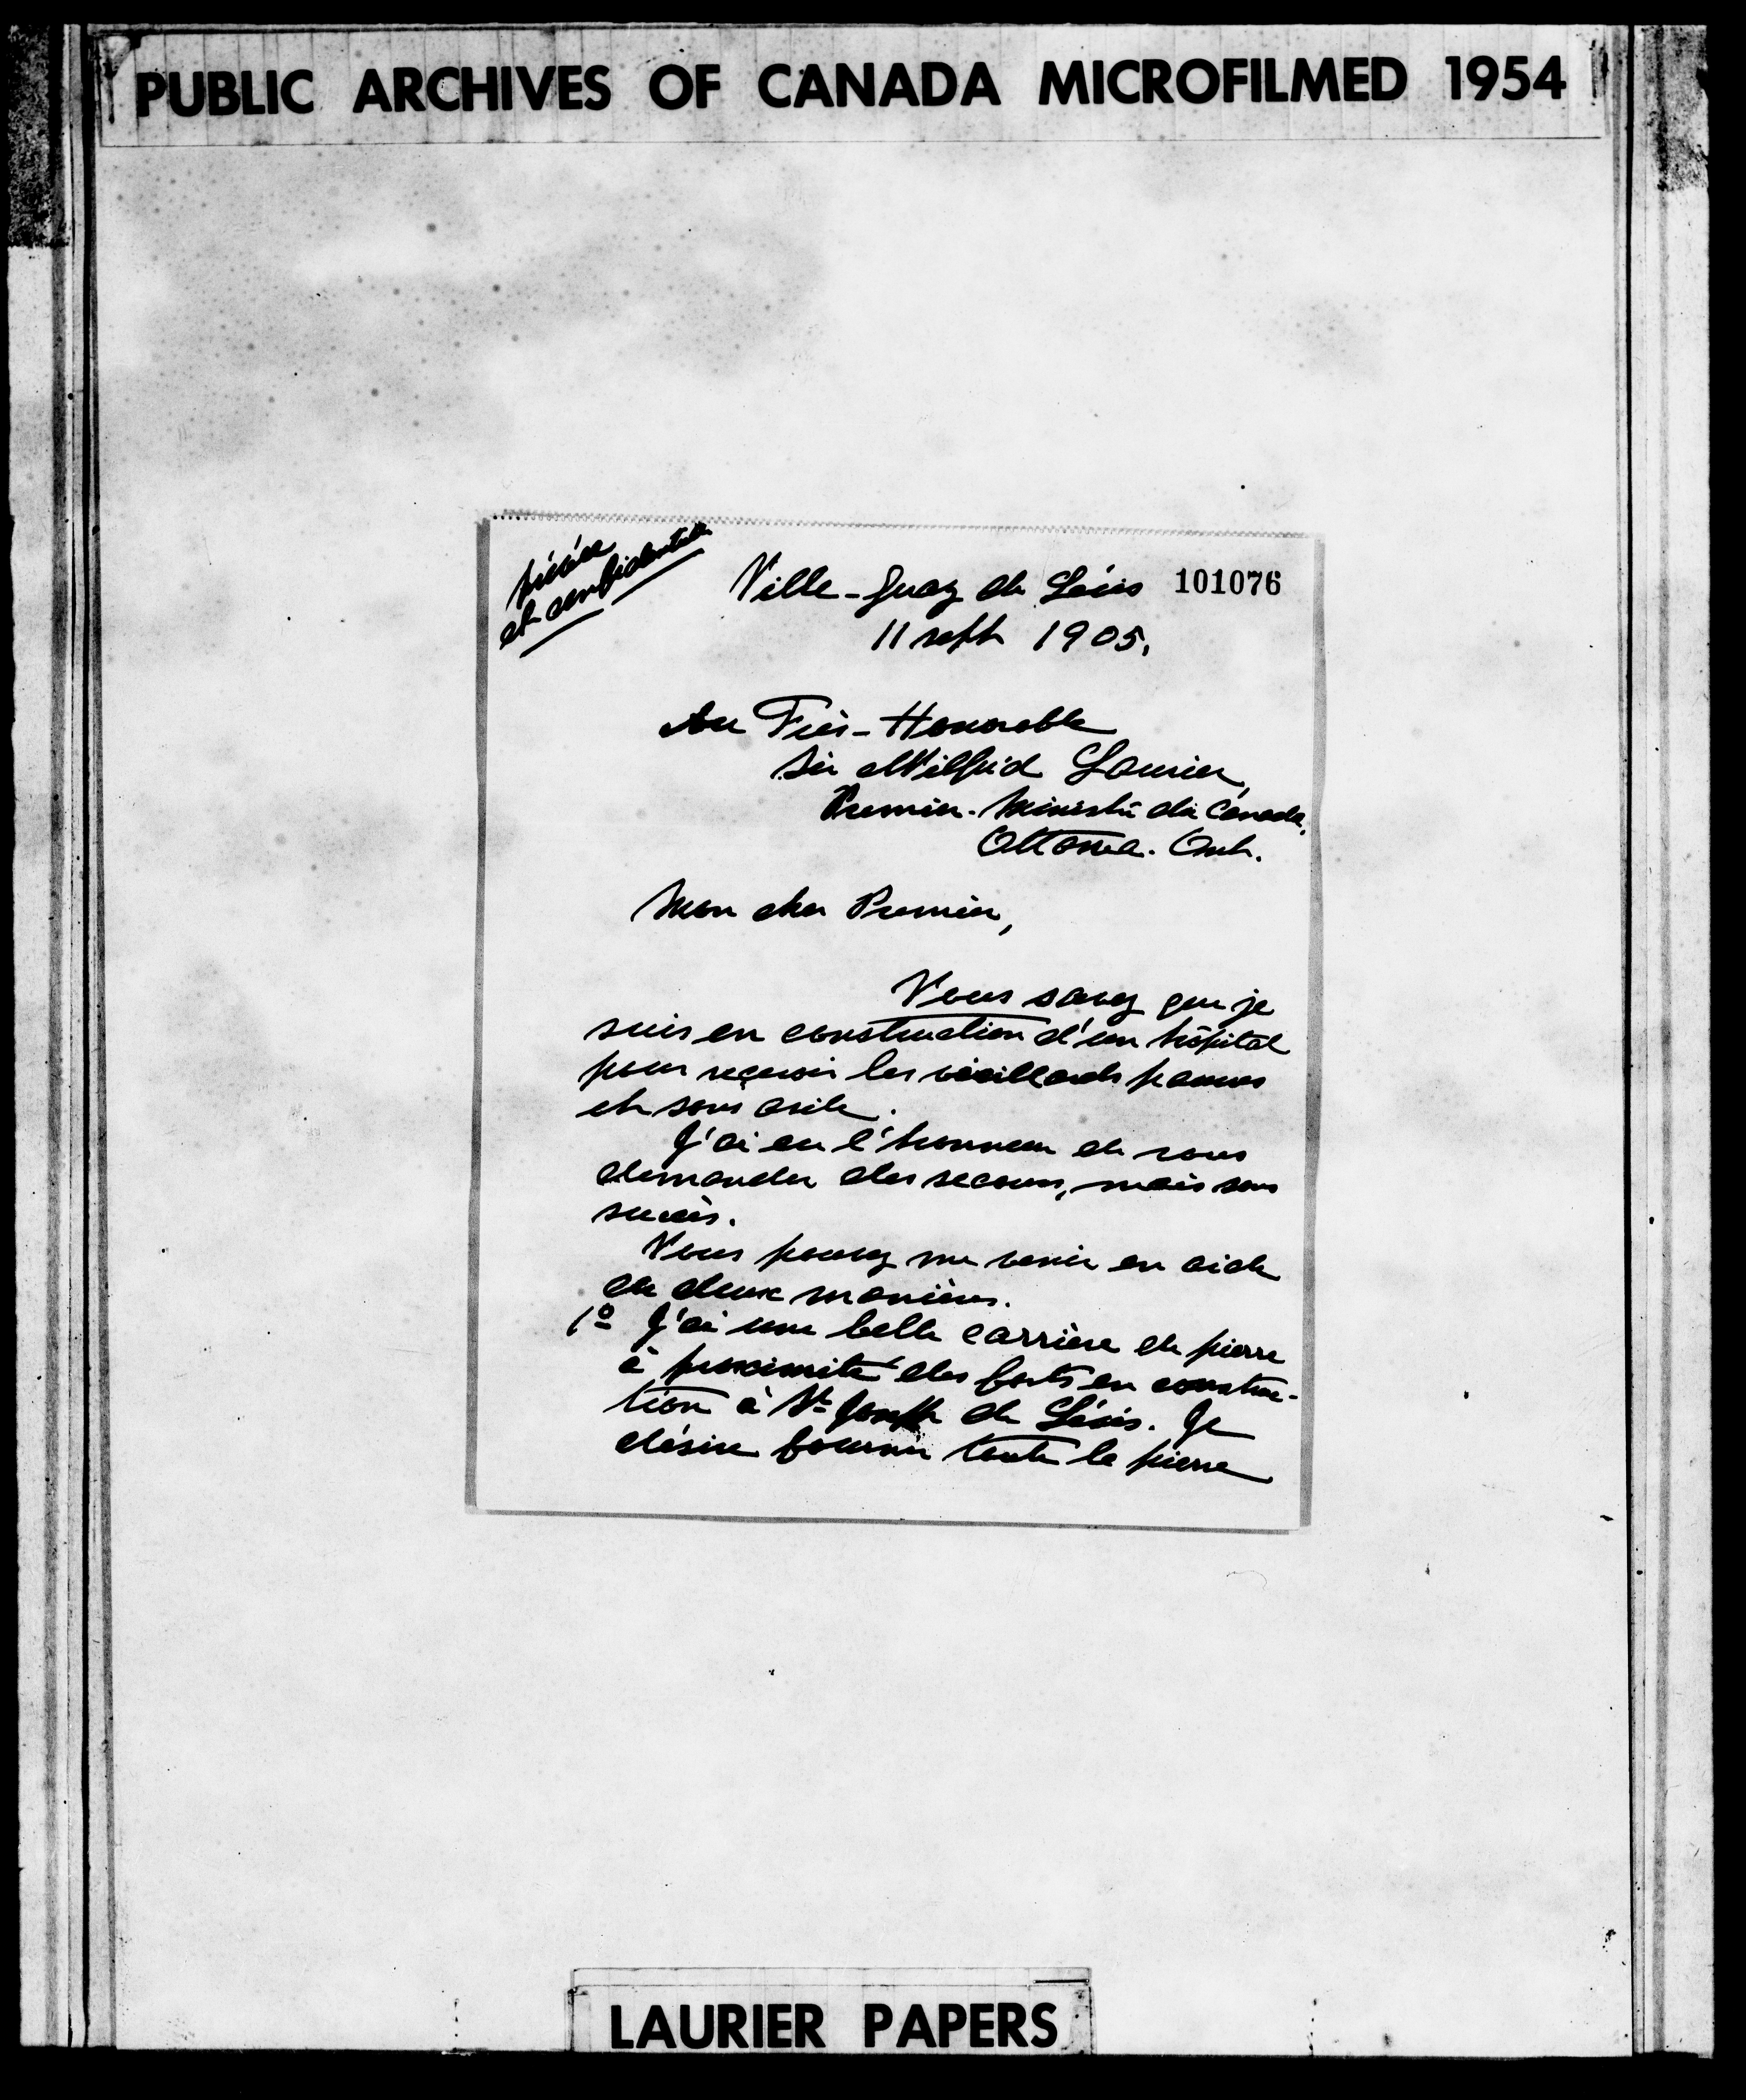 PUBLIC ARCHIVES OF CANADA MICROFILMED 1954
privée
et confidentielle
Ville-Guay de Lévis 101076
11 sept 1905.
Au Très-Honorable
Sir Wilfrid Laurier,
Premier-Ministre du Canada,
Ottawa. Ont.
Mon cher Premier,
Vous savez que je
suis en construction d'un hôpital
pour recevoir les vieillards pauvres
et sans asile.
J'ai eu l'honneur de vous
demander des secours, mais sans
succès.
Vous pouvez me venir en aide
de deux manières.
1º J'ai une belle carrière de pierre
à proximité des forts en construc-
tion à St Joseph de Lévis. Je
désire fournir toute la pierre
LAURIER PAPERS